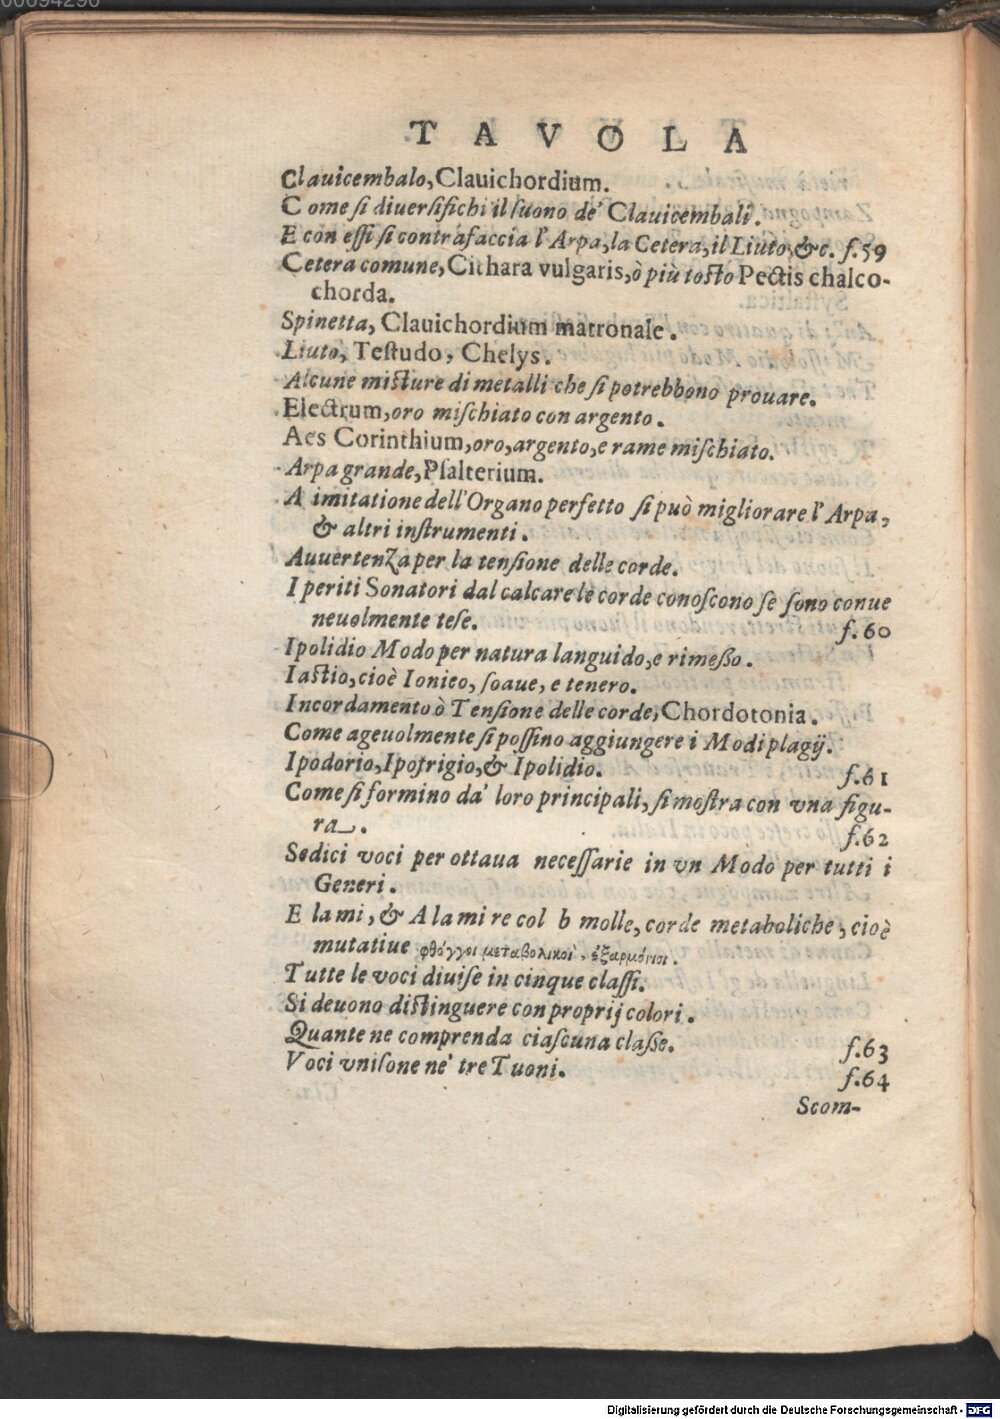 00094290
TAVOLA
Clauicembalo, Clauichordium.
Come ſi diuerſifichi il ſuono de' Clauicembali.
E con eſſi ſi contrafaccia l'Arpa, la Cetera, il Liuto, &c. f.59
Cetera comune, Cithara vulgaris, ò più toſto Pectis chalco-
chorda.
Spinetta, Clauichordium matronale.
Liuto, Teſtudo, Chelys.
Alcune miſture di metalli che ſi potrebbono prouare.
Electrum, oro miſchiato con argento.
Aes Corinthium, oro, argento, e rame miſchiato.
Arpa grande, Pſalterium.
A imitatione dell'Organo perfetto ſi può migliorare l'Arpa,
& altri inſtrumenti.
Auuertenza per la tenſione delle corde.
I periti Sonatori dal calcare le corde conoſcono ſe ſono conue
neuolmente teſe. f.60
Ipolidio Modo per natura languido, e rimeſſo.
Iaſtio, cioè Ionico, ſoaue, e tenero.
Incordamento ò Tenſione delle corde, Chordotonia.
Come ageuolmente ſi poſſino aggiungere i Modi plagij.
Ipodorio, Ipofrigio, & Ipolidio. f.61
Come ſi formino da' loro principali, ſi moſtra con vna figu-
ra. f.62
Sedici voci per ottaua neceſſarie in vn Modo per tutti i
Generi.
E la mi, & A la mi re col b molle, corde metaboliche, cioè
mutatiue φθόγγοι μεταβολικοὶ, ἐξαρμόνιοι.
Tutte le voci diuiſe in cinque claſſi.
Si deuono diſtinguere con proprij colori.
Quante ne comprenda ciaſcuna claſſe. f.63
Voci vniſone ne' tre Tuoni. f.64
Scom-
Digitalisierung gefördert durch die Deutsche Forschungsgemeinschaft - DFG